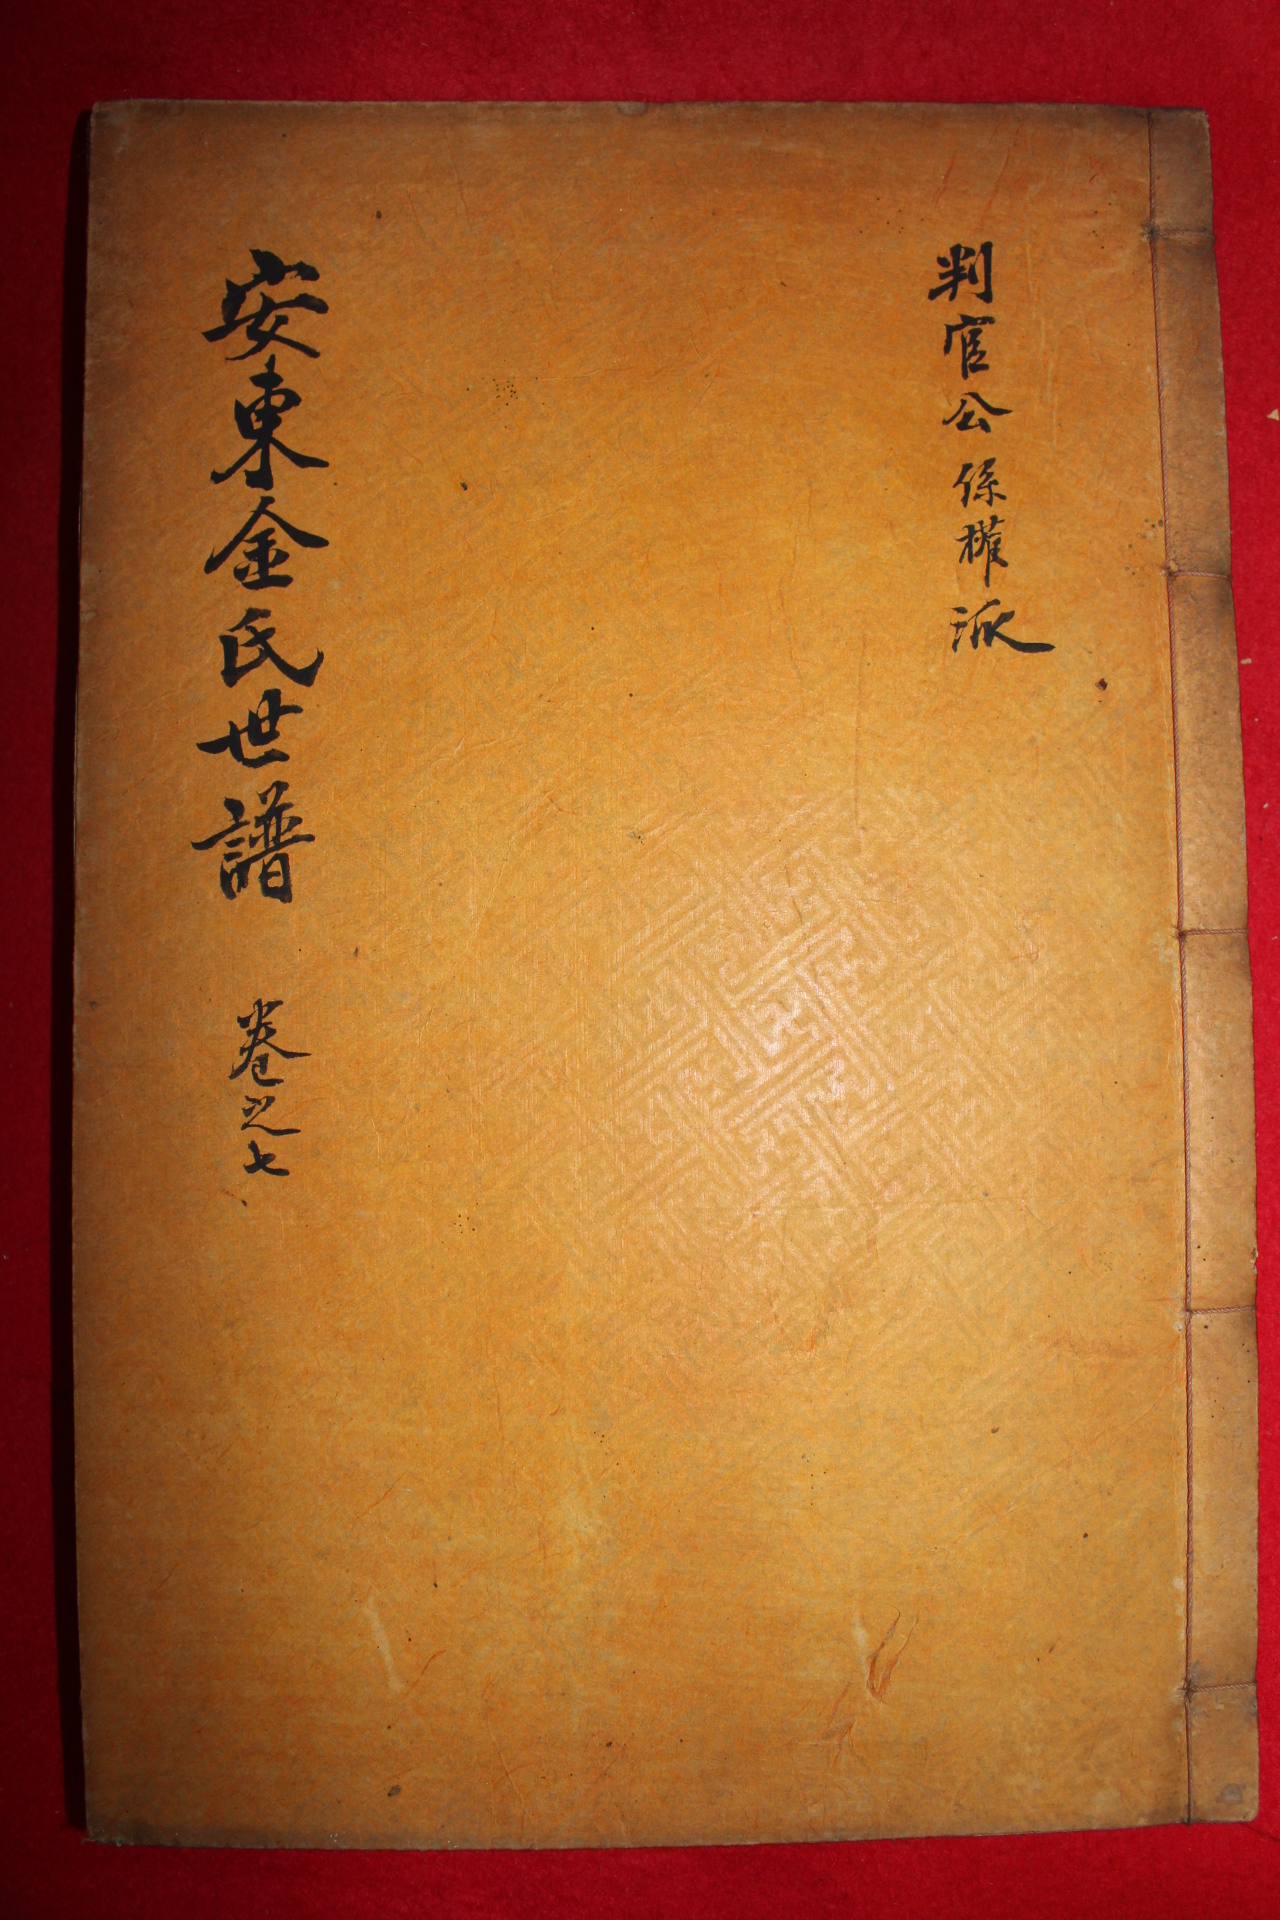 判官公係權派
安東金氏世譜 卷之七